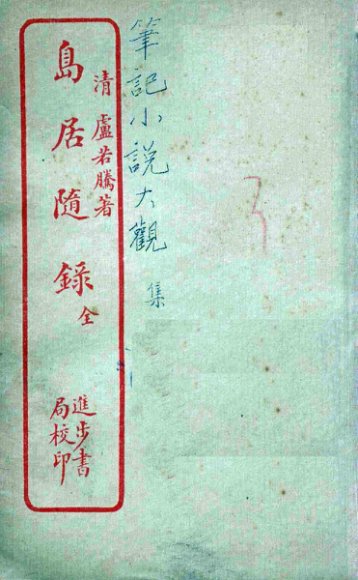 筆記小說大觀 集
清 盧若騰著
島居隨錄 全
進步書
局校印